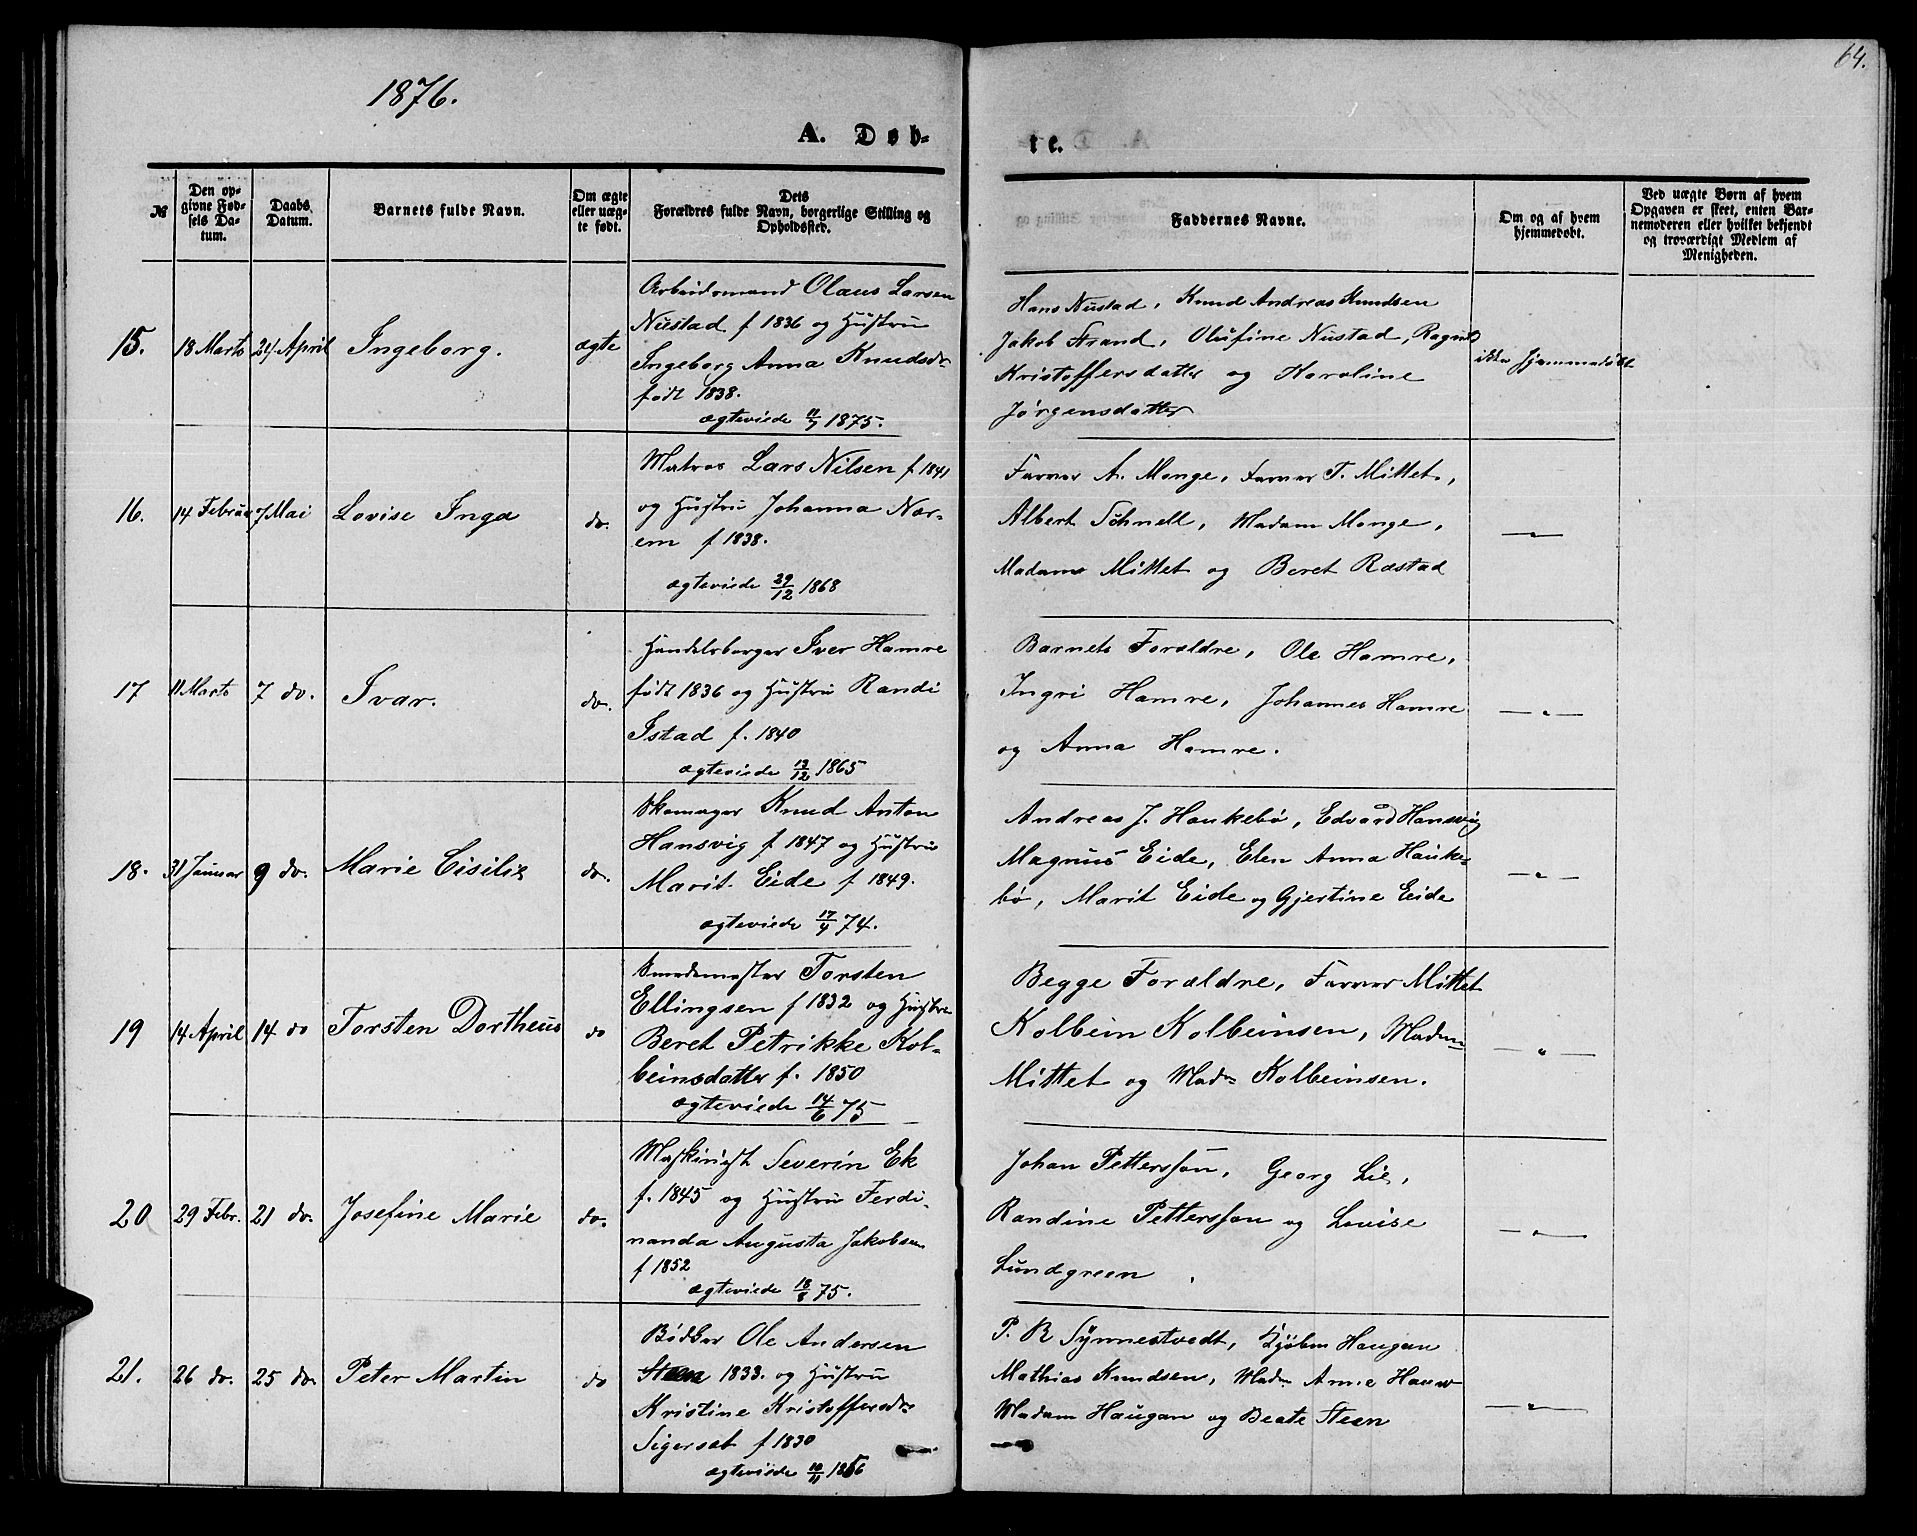 1876.
64.
A. Døb-
te.
№
Den op-
givne Fød-
sels Da-
tum.
Daabs
Datum.
Barnets fulde Navn.
Om ægte
eller uæg-
te født.
Dets
Forældres fulde Navn, borgerlige Stilling og
Opholdssted.
Faddernes Navne.
Om og af hvem
hjemmedøbt.
Ved uægte Børn af hvem
Opgaven er skeet, enten Bar-
nemoderen eller hvilket bekjendt
og troværdigt Medlem af
Menigheden.
15.
18 Marts
24 April
Ingeborg.
ægte
Arbeidsmand Olaus Larsen
Nustad f 1836 og Hustru
Ingeborg Anna Knudsdr
født 1838.
ægteviede 11/7 1875.
Hans Nustad, Knud Andreas Knudsen
Jakob Strand, Olufine Nustad, Ragnil
Kristoffersdatter og Karoline
Jørgensdatter
ikke hjemmedøbt
16.
14 Februar
7 Mai
Lovise Inga
do.
Matros Lars Nilsen f 1841
og Hustru Johanna Nor-
em f 1838.
ægteviede 29/12 1868
Farver A. Monge, Farver T. Mittet,
Albert Schnell, Madam Monge,
Madam Mittet og Beret Ræstad
— " —
17
11 Marts
7 do.
Ivar.
do.
Handelsborger Iver Hamre
født 1836 og Hustru Randi
Istad f. 1840
ægteviede 12/12 1865
Barnets Forældre, Ole Hamre,
Ingri Hamre, Johannes Hamre
og Anna Hamre.
— " —
18.
31 Januar
9 do.
Marie Cisilie
do.
Skomager Knud Anton
Hansvig f 1847 og Hustru
Marit Eide f 1849.
ægteviede 17/4 74.
Andreas J. Haukebø, Edvard Hansvig
Magnus Eide, Elen Anna Hauke-
bø, Marit Eide og Gjertine Eide
— " —
19
14 April
14 do
Torsten Dortheus
do
Smedemester Torsten
Ellingsen f 1832 og Hustru
Beret Petrikke Kol-
beinsdatter f. 1850
ægteviede 14/6 75
Begge Forældre, Farver Mittet
Kolbein Kolbeinsen, Madm
Mittet og Madm Kolbeinsen.
— " —
20
29 Febr.
21 do.
Josefine Marie
do.
Maskinist Severin Ek
f. 1845 og Hustru Ferdi-
nanda Augusta Jakobsen
f 1852
ægteviede 18/8 75.
Johan Pettersson, Georg Lie,
Randine Pettersson og Lovise
Lundgreen
— " —
21.
26 do.
25 do.
Peter Martin
do
Bødker Ole Andersen
Steen 1833. og Hustru
Kristine Kristoffersdr
Sigerset f 1830
ægteviede 10/11 1856
P. R Synnestvedt, Kjøbm Haugan
Mathias Knudsen, Madm Anne
Madam Haugan og Beate Steen
— " —